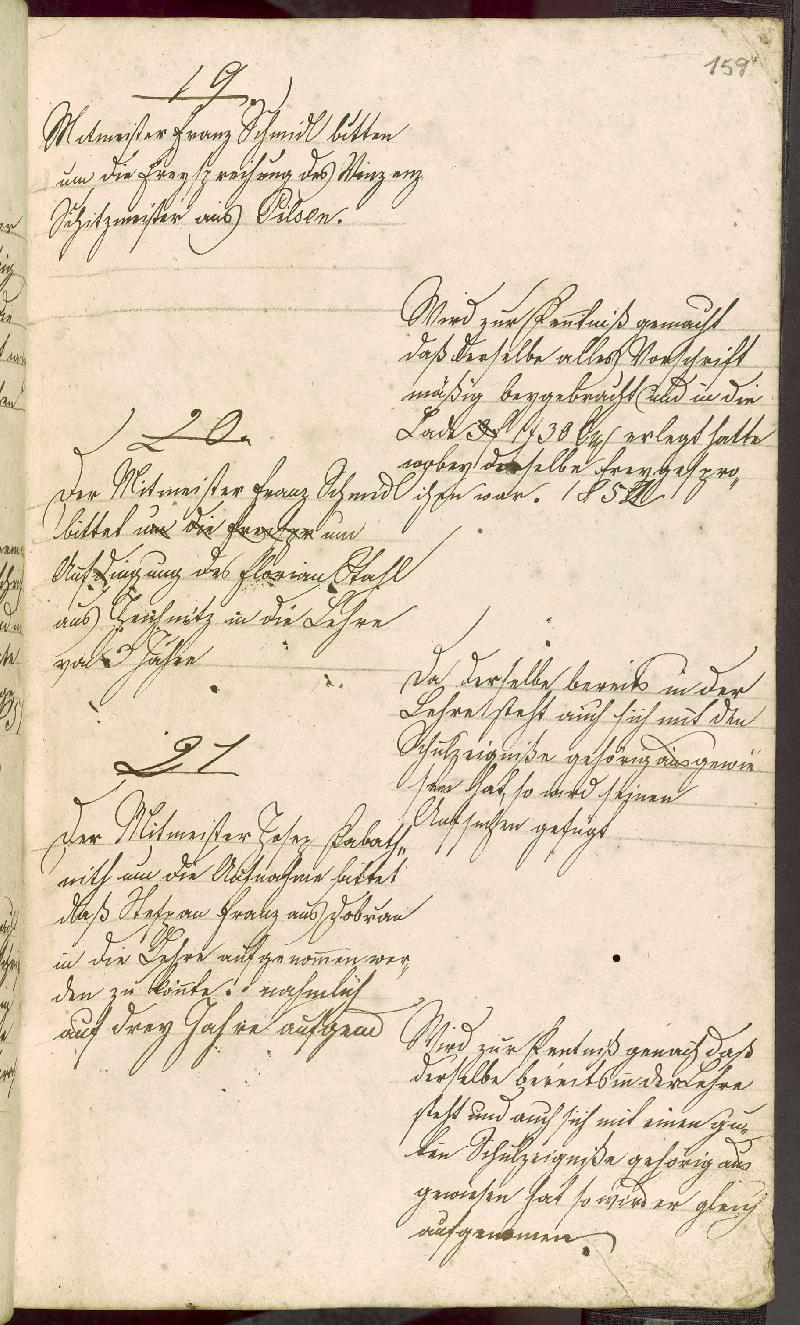 159
19.
Mitmeister Franz Schmidl bitten
um die Freysprechung des Winzenz
Schitzmeister aus Pilsen.
Wird zur Kentniß gemacht
daß derselbe alles Vorschrift
mäßig beygebracht und in die
Lade 1 f 30 erlegt hatte
wobey derselbe freygespro„
chen war. 185
20.
Der Mitmeister Franz Schmidl
bittet um die um
Aufdingung des Florian Stahl
aus in die Lehre
von 3 Jahre
Da derselbe bereits in der
Lehre steht auch sich mit den
Schulzeigniße gehörig ausgewie
sen hat, so wird seinen
Ansuchen gefügt
21
Der Mitmeister Josef Kabath„
nith um die Aufnahme bittet
daß Stephan Franz aus Dobran
in die Lehre aufgenommen wer„
den zu könnte: nahmlich
auf drey Jahre aufgend
Wird zur Kentniß gemach daß
derselbe bereits in der Lehre
steht und auch sich mit einen gu„
ten Schulzeigniße gehörig aus
gewiesen hat so wird er gleich
aufgenomen.